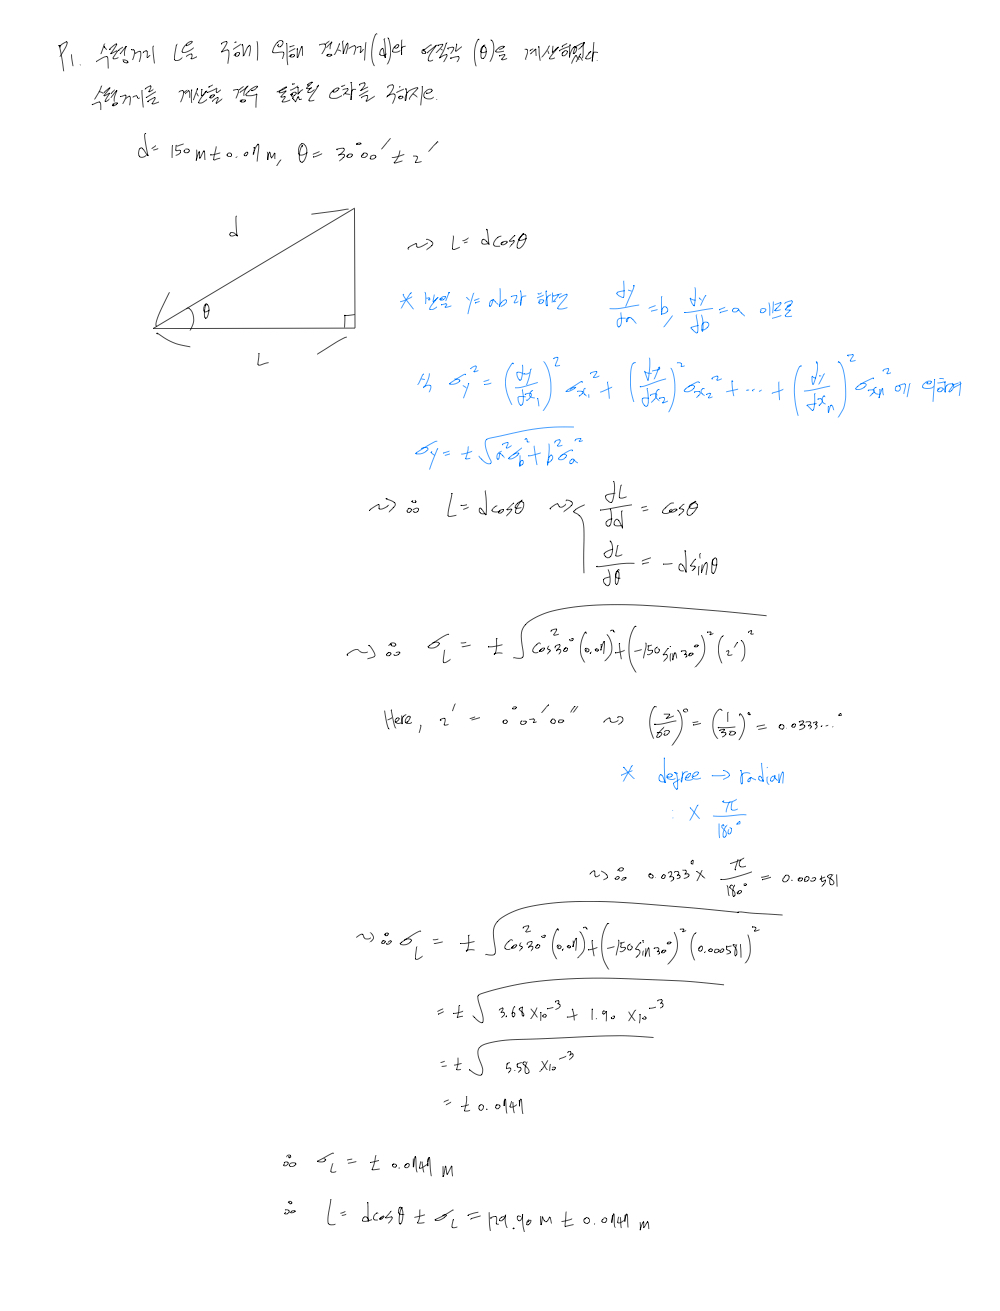 P1. 수평거리 L을 구하기 위해 경사거리(d)와 연직각 (θ)을 계산하였다.
수평거리를 계산할 경우 포함된 오차를 구하시오.
d = 150m ± 0.07m, θ = 30°00′ ± 2′
d
θ
L
~> L = dcosθ
* 만일 y = ab라 하면 dy/da = b, dy/db = a 이므로
식 σy² = (dy/dx₁)² σx₁² + (dy/dx₂)² σx₂² + ⋯ + (dy/dxₙ)² σxₙ² 에 의하여
σy = ± √(a²σb² + b²σa²)
~> ∴ L = dcosθ ~> ∂L/∂d = cosθ
∂L/∂θ = -dsinθ
~> ∴ σL = ± √(cos²30° (0.07)² + (-150sin30°)² (2′)²)
Here, 2′ = 0°02′00″ ~> (2/60)° = (1/30)° = 0.0333⋯°
* degree → radian
: × π/180°
~> ∴ 0.0333° × π/180° = 0.000581
~> ∴ σL = ± √(cos²30° (0.07)² + (-150sin30°)² (0.000581)²)
= ± √(3.68 ×10⁻³ + 1.90 ×10⁻³)
= ± √(5.58 ×10⁻³)
= ± 0.0747
∴ σL = ± 0.0747 m
∴ L = dcosθ ± σL = 129.90 m ± 0.0747 m